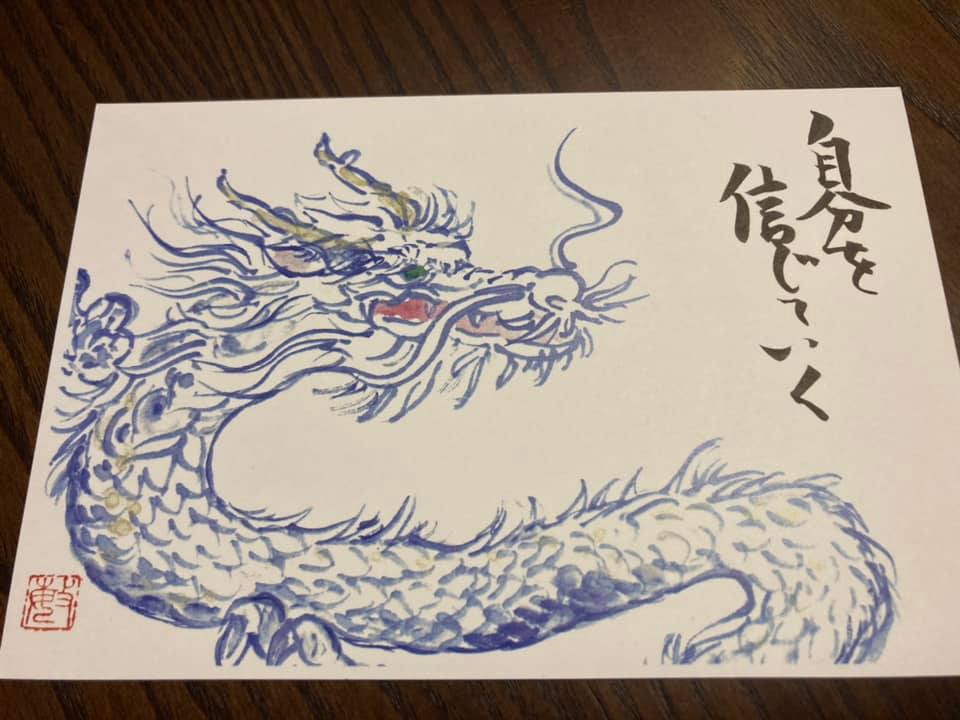 自分を
信じていく